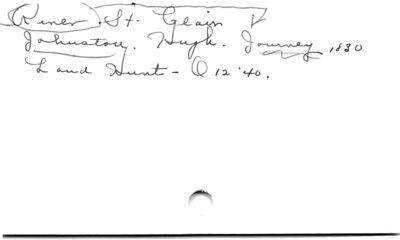 River St. Clair
Johnston, Hugh. Journey 1830
Land Hunt - Q 12.40.